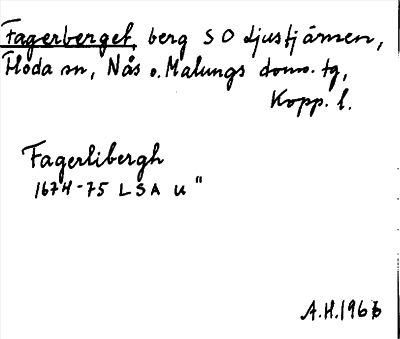 Fagerberget, berg S O Ljustjärnen,
Floda sn, Nås o. Malungs doms. tg,
Kopp. l.
Fagerlibergh
1674-75 LSA u "
A.H. 1966